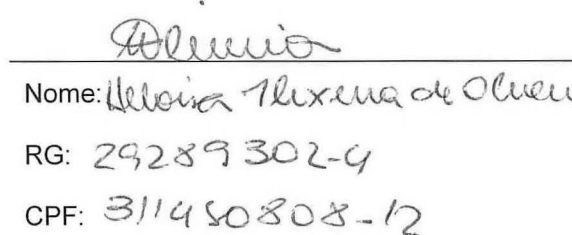 Nome: Heloisa Teixeira de Olivei
RG: 29289302-4
CPF: 311450808-12